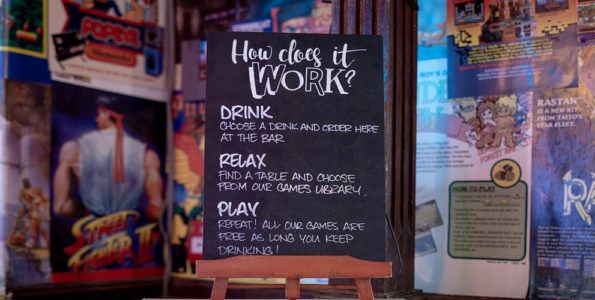 How does it
WORK?
DRINK
CHOOSE A DRINK AND ORDER HERE
AT THE BAR
RELAX
FIND A TABLE AND CHOOSE
FROM OUR GAMES LIBRARY.
PLAY
REPEAT! ALL OUR GAMES ARE
FREE AS LONG YOU KEEP
DRINKING!
POPEYE
Nintendo
STREET
FIGHTER II
HOW TO PLAY
RASTAN
IS A NEW KIT
FROM TAITO'S
STAR FLEET.